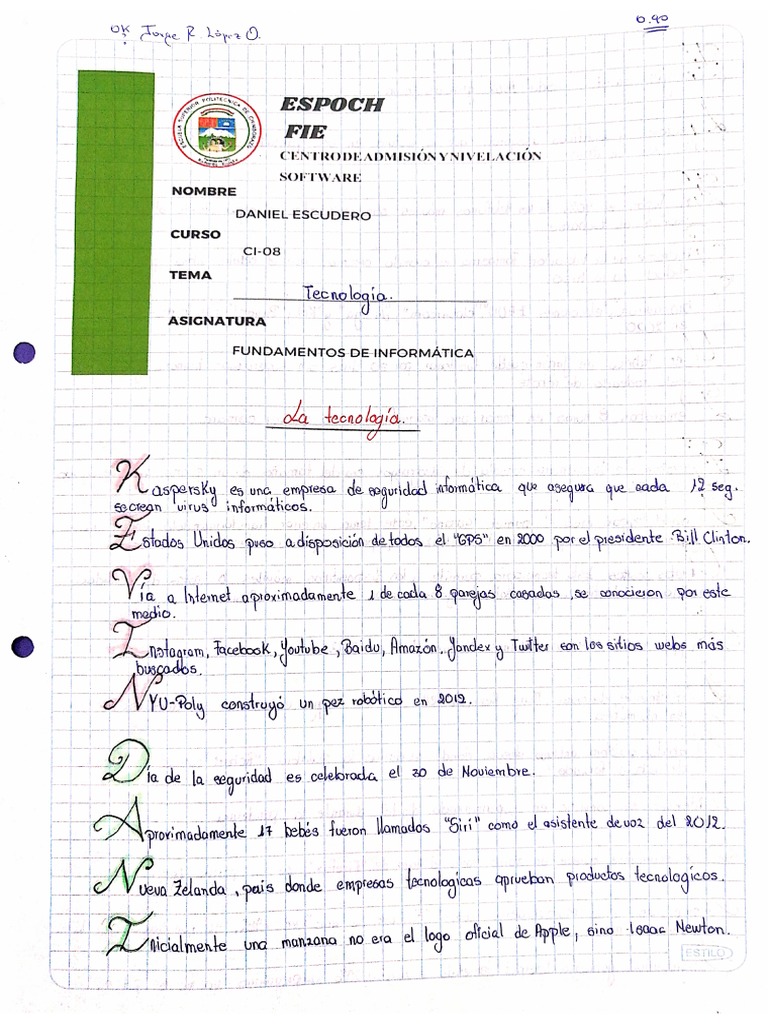 OK Jorge R. López O.
0.90
ESPOCH
FIE
CENTRO DE ADMISIÓN Y NIVELACIÓN
SOFTWARE
NOMBRE
DANIEL ESCUDERO
CURSO
CI-08
TEMA
Tecnología.
ASIGNATURA
FUNDAMENTOS DE INFORMÁTICA
La tecnología.
Kaspersky es una empresa de seguridad informática que asegura que cada 12 seg.
secrean virus informáticos.
Estados Unidos puso a disposición de todos el "GPS" en 2000 por el presidente Bill Clinton.
Vía a Internet aproximadamente 1 de cada 8 parejas casadas, se conocieron por este
medio.
Instagram, Facebook, Youtube, Baidu, Amazón, Yandex y Twitter son los sitios webs más
buscados.
NYU-Poly construyó un pez robótico en 2012.
Día de la seguridad es celebrada el 30 de Noviembre.
Aproximadamente 17 bebés fueron llamados "Siri" como el asistente de voz del 2012.
Nueva Zelanda, pais donde empresas tecnologicas aprueban productos tecnologícos.
Inicialmente una manzana no era el logo oficial de Apple, sino Isaac Newton.
ESTILO